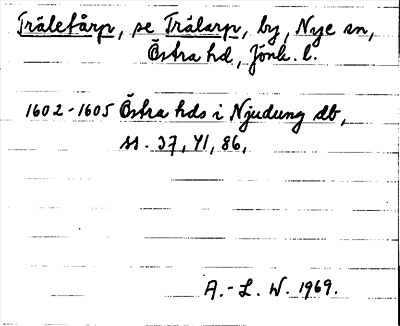 Trälefårp, se Trälarp, by, Nye sn,
Östra hd, Jönk. l.
1602-1605 Östra hds i Njudung db,
ss. 37, 41, 86,
A.-L. W. 1969.